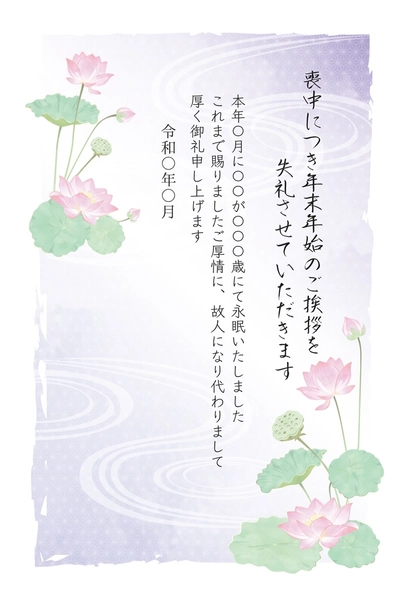 喪中につき年末年始のご挨拶を
失礼させていただきます
本年〇月に〇〇が〇〇〇歳にて永眠いたしました
これまで賜りましたご厚情に、故人になり代わりまして
厚く御礼申し上げます
令和〇年〇月